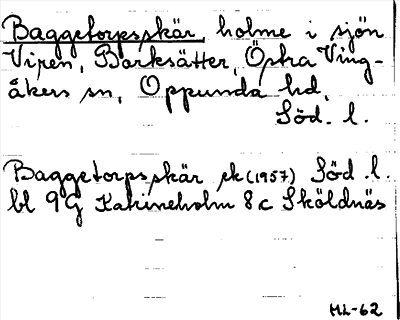 Baggetorpsskär, holme i sjön
Viren, Barksätter, Östra Ving-
åkers sn, Oppunda hd,
Söd. l.
Baggetorpsskär ek (1957) Söd. l.
bl 9G Katrineholm 8c Sköldnäs
ML-62